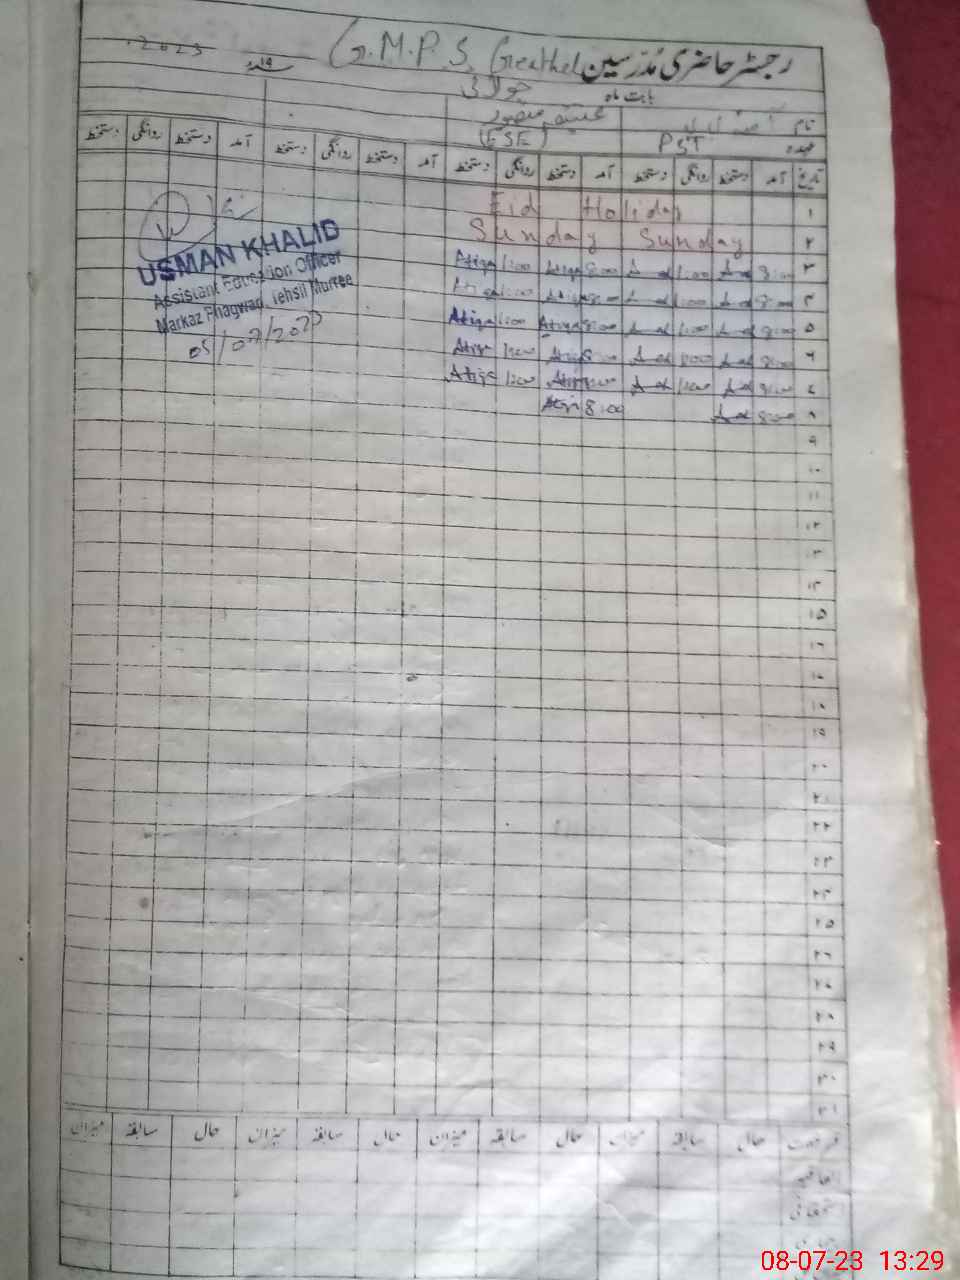 G.M.P.S. Greathel رجسٹر حاضری مُدرّسین
2023
بابت ماہ جولائی
نام
عتیقہ منصور
عہدہ PST (ESE)
تاریخ آمد دستخط روانگی دستخط آمد دستخط روانگی دستخط آمد دستخط روانگی دستخط آمد دستخط روانگی دستخط
۱ Eid Holiday
۲ Sunday Sunday
۳ 8:00 1:00 Atiqa 8:00 Atiqa 1:00
۴ 8:00 1:00 Atiqa 8:00 Atiqa 1:00
۵ 8:00 1:00 Atiqa 8:00 Atiqa 1:00
۶ 8:00 1:00 Atiqa 8:00 Atiqa 1:00
۷ 8:00 1:00 Atiqa 8:00 Atiqa 1:00
۸ 8:00 Atiqa 8:00
USMAN KHALID
Assistant Education Officer
Markaz Phagwari Tehsil Murree
05/07/2023
۹
۱۰
۱۱
۱۲
۱۳
۱۴
۱۵
۱۶
۱۷
۱۸
۱۹
۲۰
۲۱
۲۲
۲۳
۲۴
۲۵
۲۶
۲۷
۲۸
۲۹
۳۰
۳۱
حال سابقہ میزان حال سابقہ میزان حال سابقہ میزان حال سابقہ میزان
اتفاقیہ
استحقاقی
08-07-23 13:29